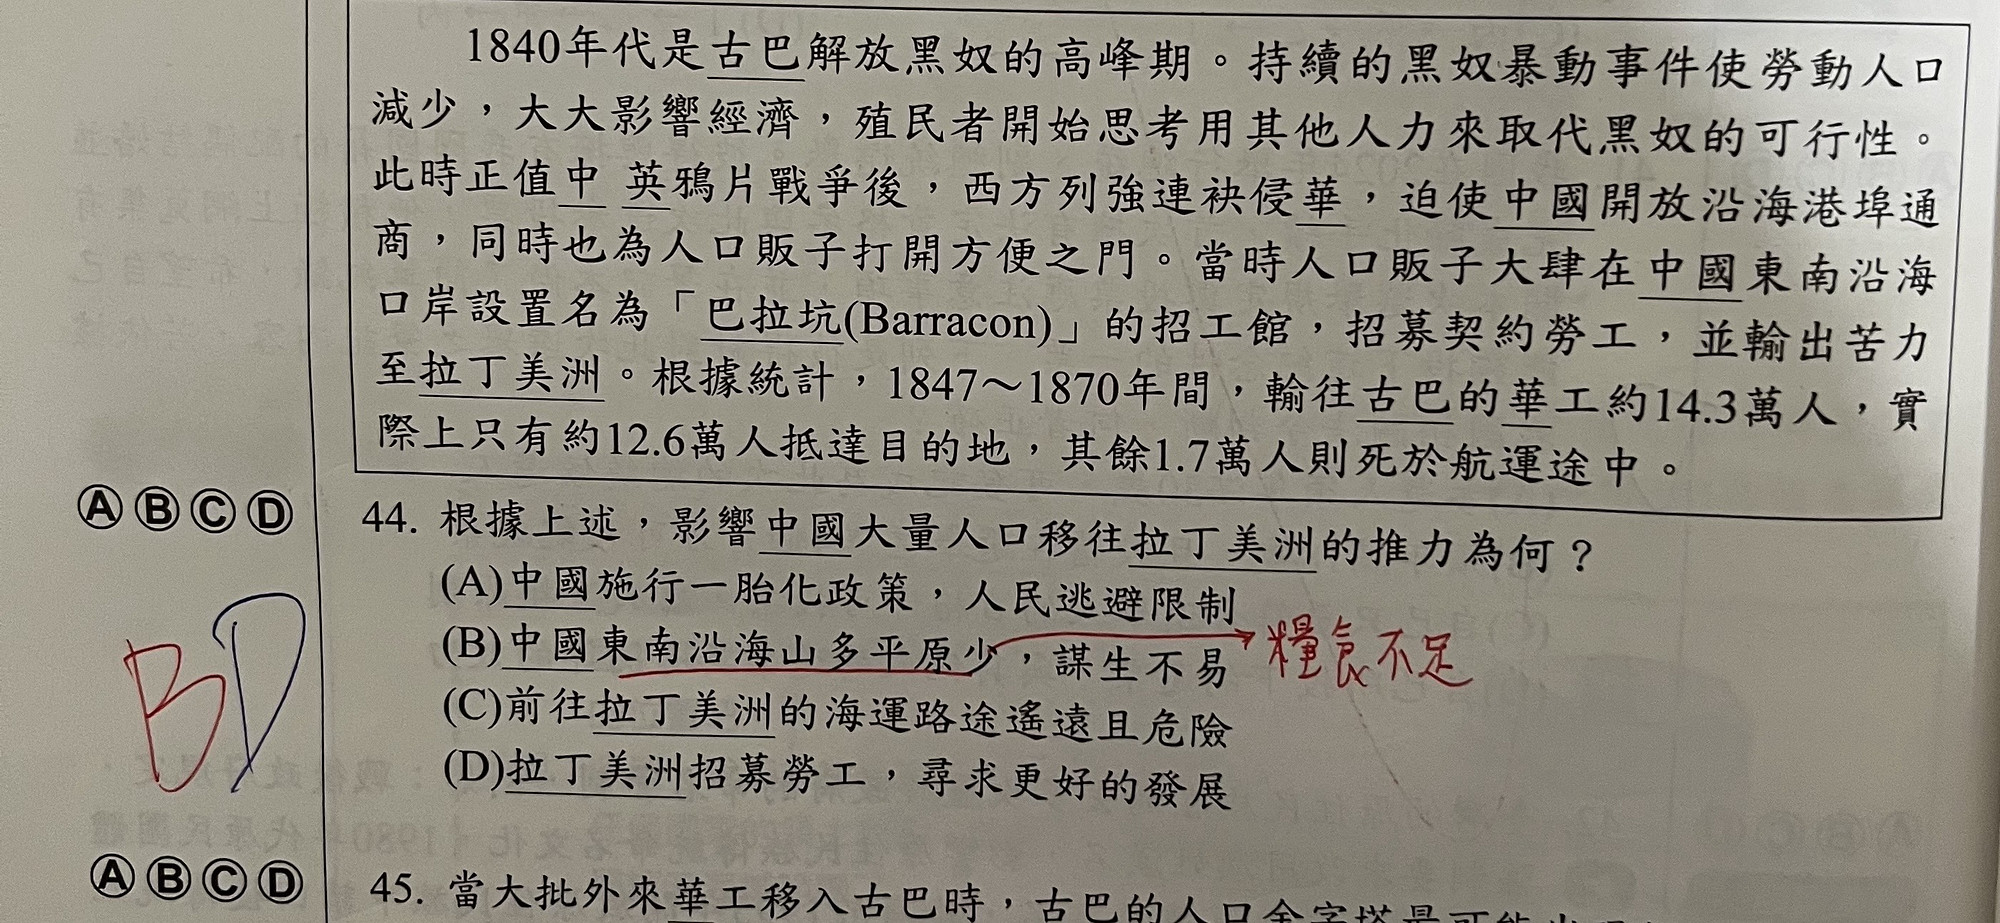 1840年代是古巴解放黑奴的高峰期。持續的黑奴暴動事件使勞動人口
減少，大大影響經濟，殖民者開始思考用其他人力來取代黑奴的可行性。
此時正值中 英鴉片戰爭後，西方列強連袂侵華，迫使中國開放沿海港埠通
商，同時也為人口販子打開方便之門。當時人口販子大肆在中國東南沿海
口岸設置名為「巴拉坑(Barracon)」的招工館，招募契約勞工，並輸出苦力
至拉丁美洲。根據統計，1847～1870年間，輸往古巴的華工約14.3萬人，實
際上只有約12.6萬人抵達目的地，其餘1.7萬人則死於航運途中。
ⒶⒷⒸⒹ 44. 根據上述，影響中國大量人口移往拉丁美洲的推力為何？
(A)中國施行一胎化政策，人民逃避限制
(B)中國東南沿海山多平原少，謀生不易 糧食不足
BD
(C)前往拉丁美洲的海運路途遙遠且危險
(D)拉丁美洲招募勞工，尋求更好的發展
ⒶⒷⒸⒹ 45. 當大批外來華工移入古巴時，古巴的人口金字塔最可能